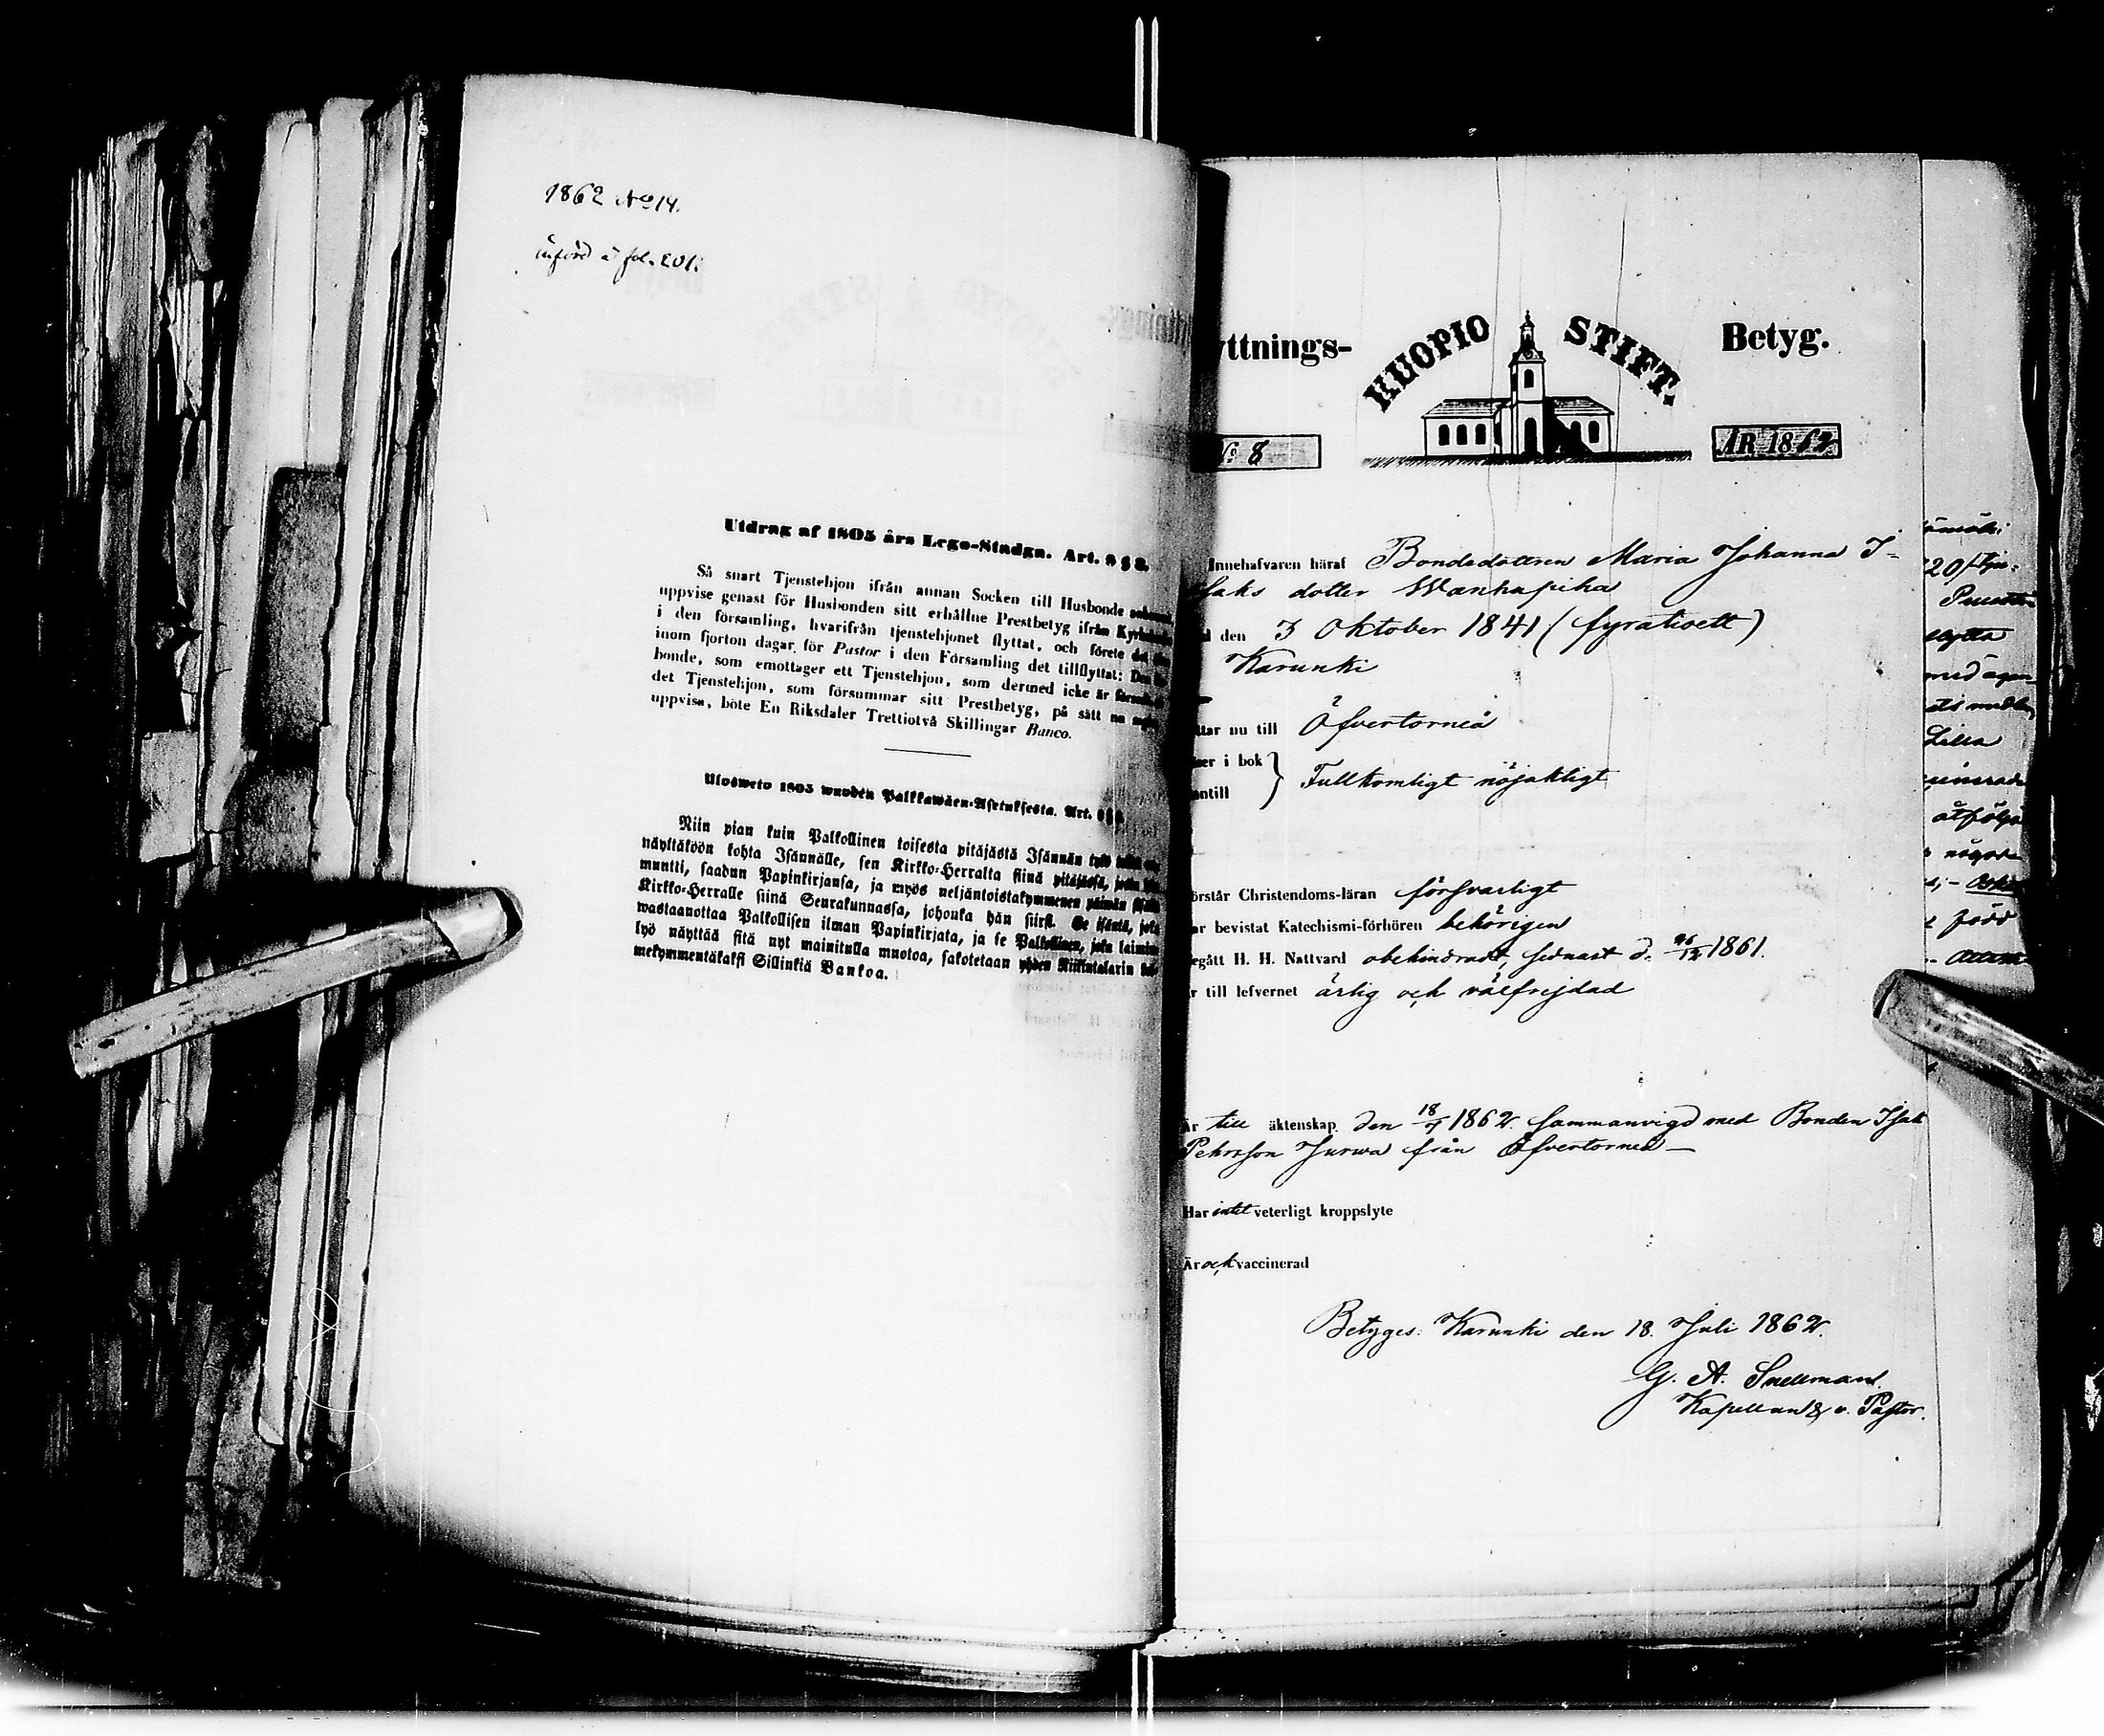 1862 No 14.
införd å fol. 201.
Utdrag af 1805 års Lego-Stadga. Art. 8 § 8.
Så snart Tjenstehjon ifrån annan Socken till Husbonde
uppvise genast för Husbonden sitt erhållne Prestbetyg ifrån
i den församling, hvarifrån tjenstehjonet flyttat, och förete det
inom fjorton dagar för Pastor i den Församling det tillflyttat: Den
bonde, som emottager ett Tjenstehjon, som dermed icke är
det Tjenstehjon, som försummar sitt Prestbetyg, på sätt nu
uppvisa, böte En Riksdaler Trettiotvå Skillingar Banco.
Ulosweto 1805 wuoden Palkkawäen-Asetuksesta. Art.
Niin pian kuin Palkollinen toisesta pitäjästä Isännän tykö
näyttäköön kohta Isännälle, sen Kirkko-Herralta siinä pitäjässä,
muutti, saadun Papinkirjansa, ja myös neljäntoistakymmenen päiwän
Kirkko-Herralle siinä Seurakunnassa, johonka hän siirsi. Se isäntä, joka
wastaanottaa Palkollisen ilman Papinkirjata, ja se Palkollinen, joka
lyö näyttää sitä nyt mainitulla muotoa, sakotetaan yhden Riikintalarin
mekymmentäkaksi Sillinkiä Bankoa.
yttnings- KUOPIO STIFT. Betyg.
No 8 ÅR 1862
Innehafvaren häraf Bondedottren Maria Johanna I=
saks dotter Wanhapiha
d den 3 Oktober 1841 (fyrationett)
Karunki
ttar nu till Öfvertorneå
ner i bok
antill } Fullkomligt nöjaktigt
örstår Christendoms-läran försvarligt
ar bevistat Katechismi-förhören behörigen
egått H. H. Nattvard obehindradt, sednast d. 26/12 1861.
r till lefvernet ärlig och välfrejdad
Är till äktenskap den 18/7 1862. sammanvigd med Bonden Isak
Pehrsson Jurwa från Öfvertorneå —
Har intet veterligt kroppslyte
Är och vaccinerad
Betyges: Karunki den 18. Juli 1862.
G. A. Snellman.
Kapellan & v. Pastor.